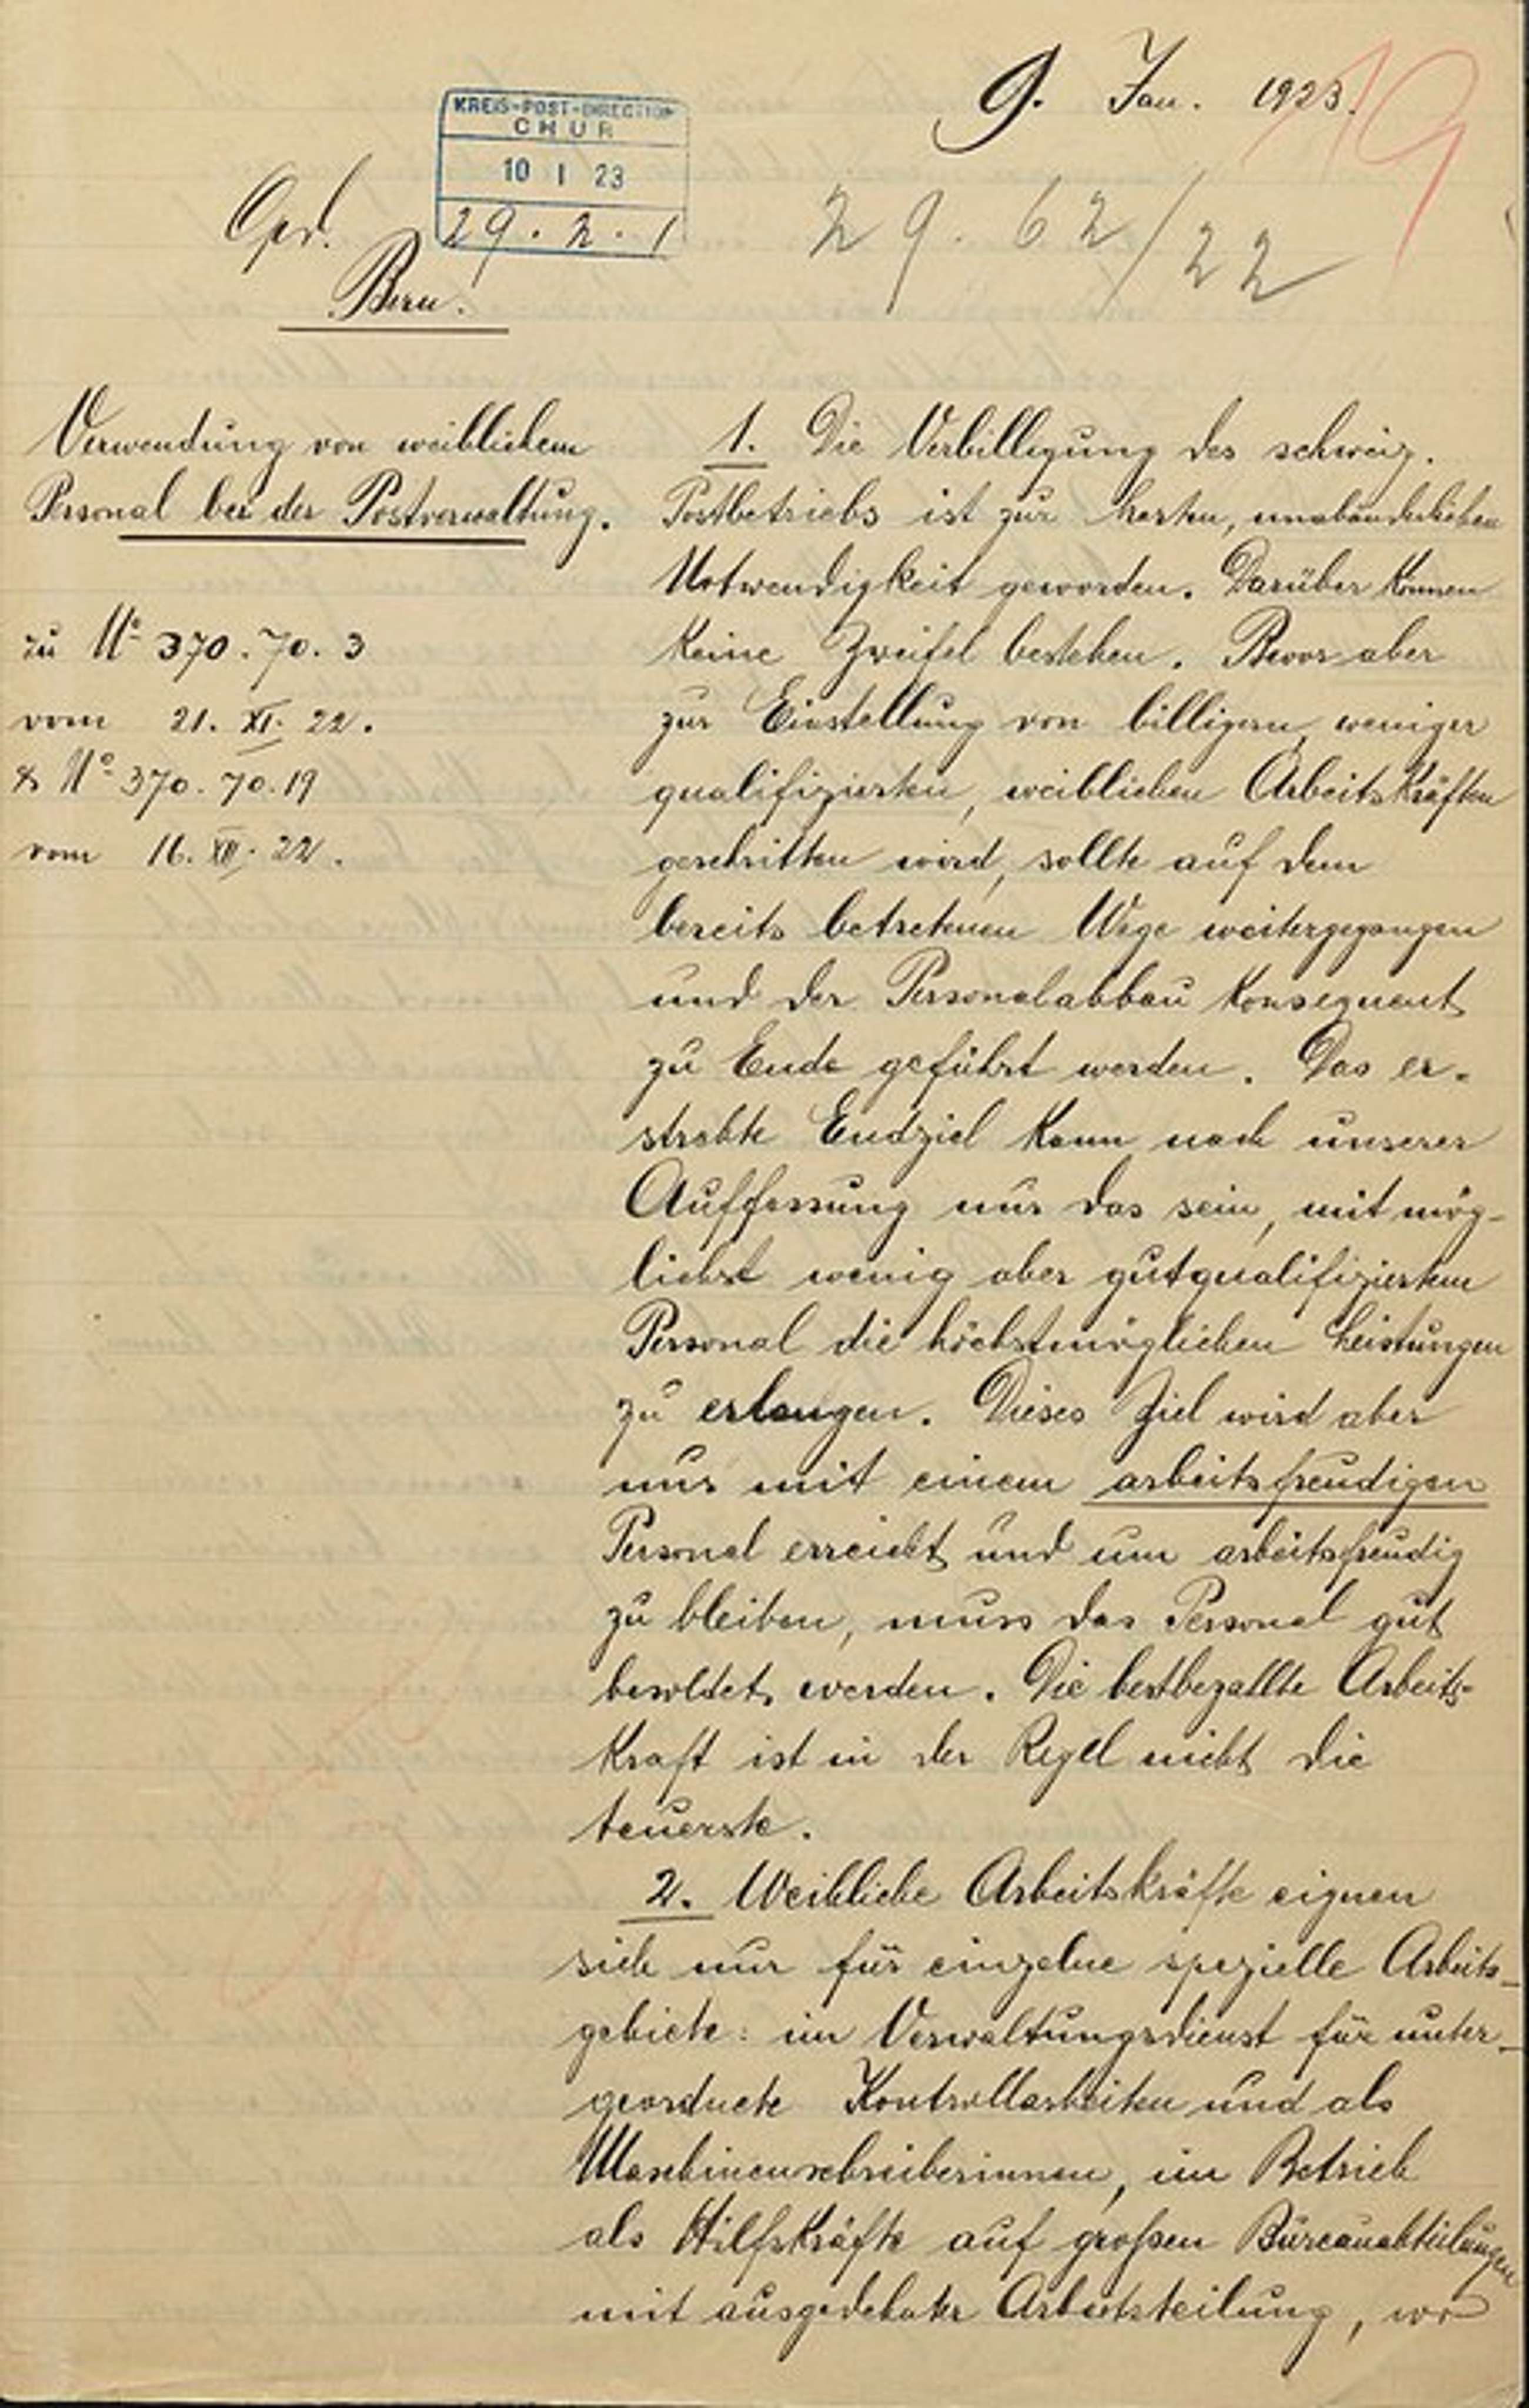 9. Jan. 1923.
19
KREIS-POST-DIRECTION
CHUR
10 I 23
29.2.1
29.62/22
Opd.
Bern.
Verwendung von weiblichem
Personal bei der Postverwaltung.
zu No 370.70.3
vom 21. XI. 22.
& No 370.70.19
vom 16. XII. 22.
1. Die Verbilligung des schweiz.
Postbetriebs ist zur harten, unabänderlichen
Notwendigkeit geworden. Darüber können
keine Zweifel bestehen. Bevor aber
zur Einstellung von billigern, weniger
qualifizierten, weiblichen Arbeitskräften
geschritten wird, sollte auf dem
bereits betretenen Wege weitergegangen
und der Personalabbau konsequent
zu Ende geführt werden. Das er-
strebte Endziel kann nach unserer
Auffassung nur das sein, mit mög-
lichst wenig aber gutqualifiziertem
Personal die höchstmöglichen Leistungen
zu erlangen. Dieses Ziel wird aber
nur mit einem arbeitsfreudigen
Personal erreicht und um arbeitsfreudig
zu bleiben, muss das Personal gut
besoldet werden. Die bestbezahlte Arbeits-
kraft ist in der Regel nicht die
teuerste.
2. Weibliche Arbeitskräfte eignen
sich nur für einzelne spezielle Arbeits-
gebiete: im Verwaltungsdienst für unter-
geordnete Kontrollarbeiten und als
Maschinenschreiberinnen, im Betrieb
als Hilfskräfte auf großen Bureauabteilungen
mit ausgedehnter Arbeitsteilung, wo